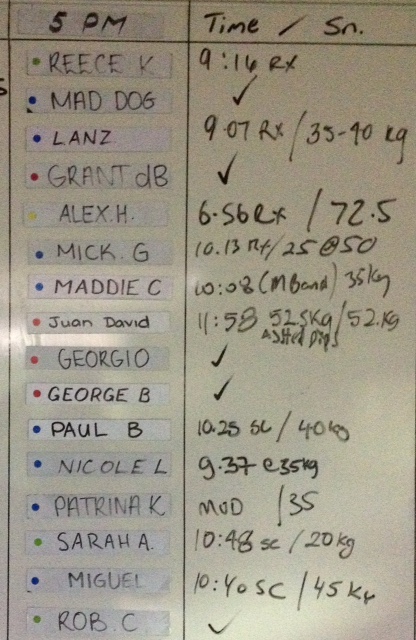 5 PM Time / Sn.
REECE K 9:14 RX
MAD DOG ✓
LANZ 9.07 RX / 35-40 kg
GRANT dB ✓
ALEX.H. 6.56 Rx / 72.5
MICK. G 10.13 Rx/25@50
MADDIE C 10:08 (M Band) 35kg
Juan David 11:58 52.5kg / 52.kg
Dips
GEORGIO ✓
GEORGE B ✓
PAUL B 10.25 SC / 40kg
NICOLE L 9.37 @35kg
PATRINA K MOD / 35
SARAH A. 10:48 sc / 20kg
MIGUEL 10:40 SC / 45 Kg
ROB. C ✓